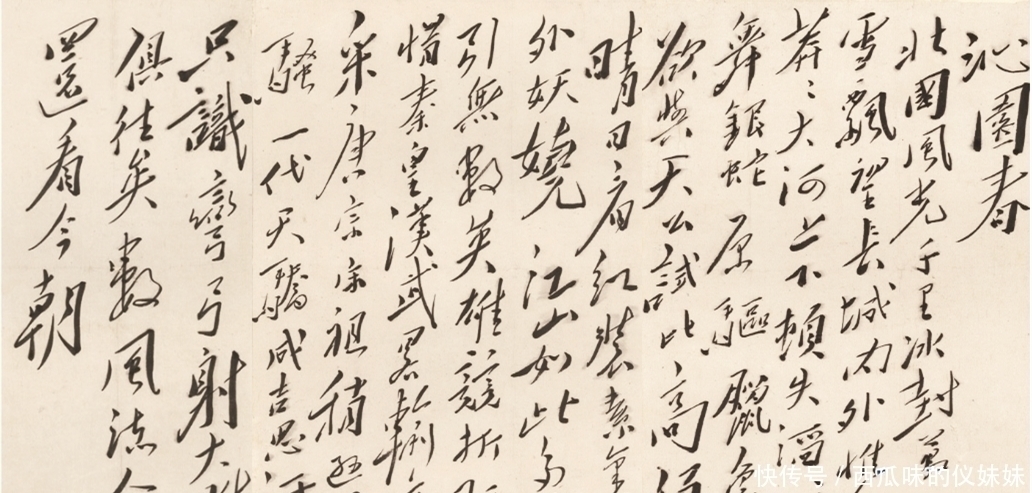 沁園春
北國風光千里冰封萬
雪飄望長城内外惟
莽〻大河上下頓失滔
舞銀蛇原驅臘
欲與天公試比高
晴日看紅裝素
外妖嬈江山如此多
引無數英雄競折
惜秦皇漢武略輸
采唐宗宋祖稍遜
騷一代天驕成吉思汗
只識彎弓射大
俱往矣數風流人
還看今朝
快传号/西瓜味的仪妹妹